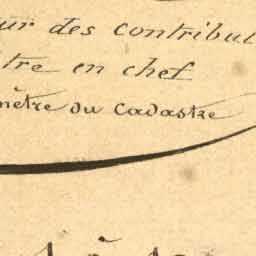 ur des contribu
tre en chef
mètre du Cadastre